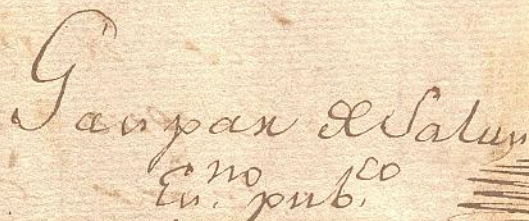 Gaspar de Salun
Es.no pub.co